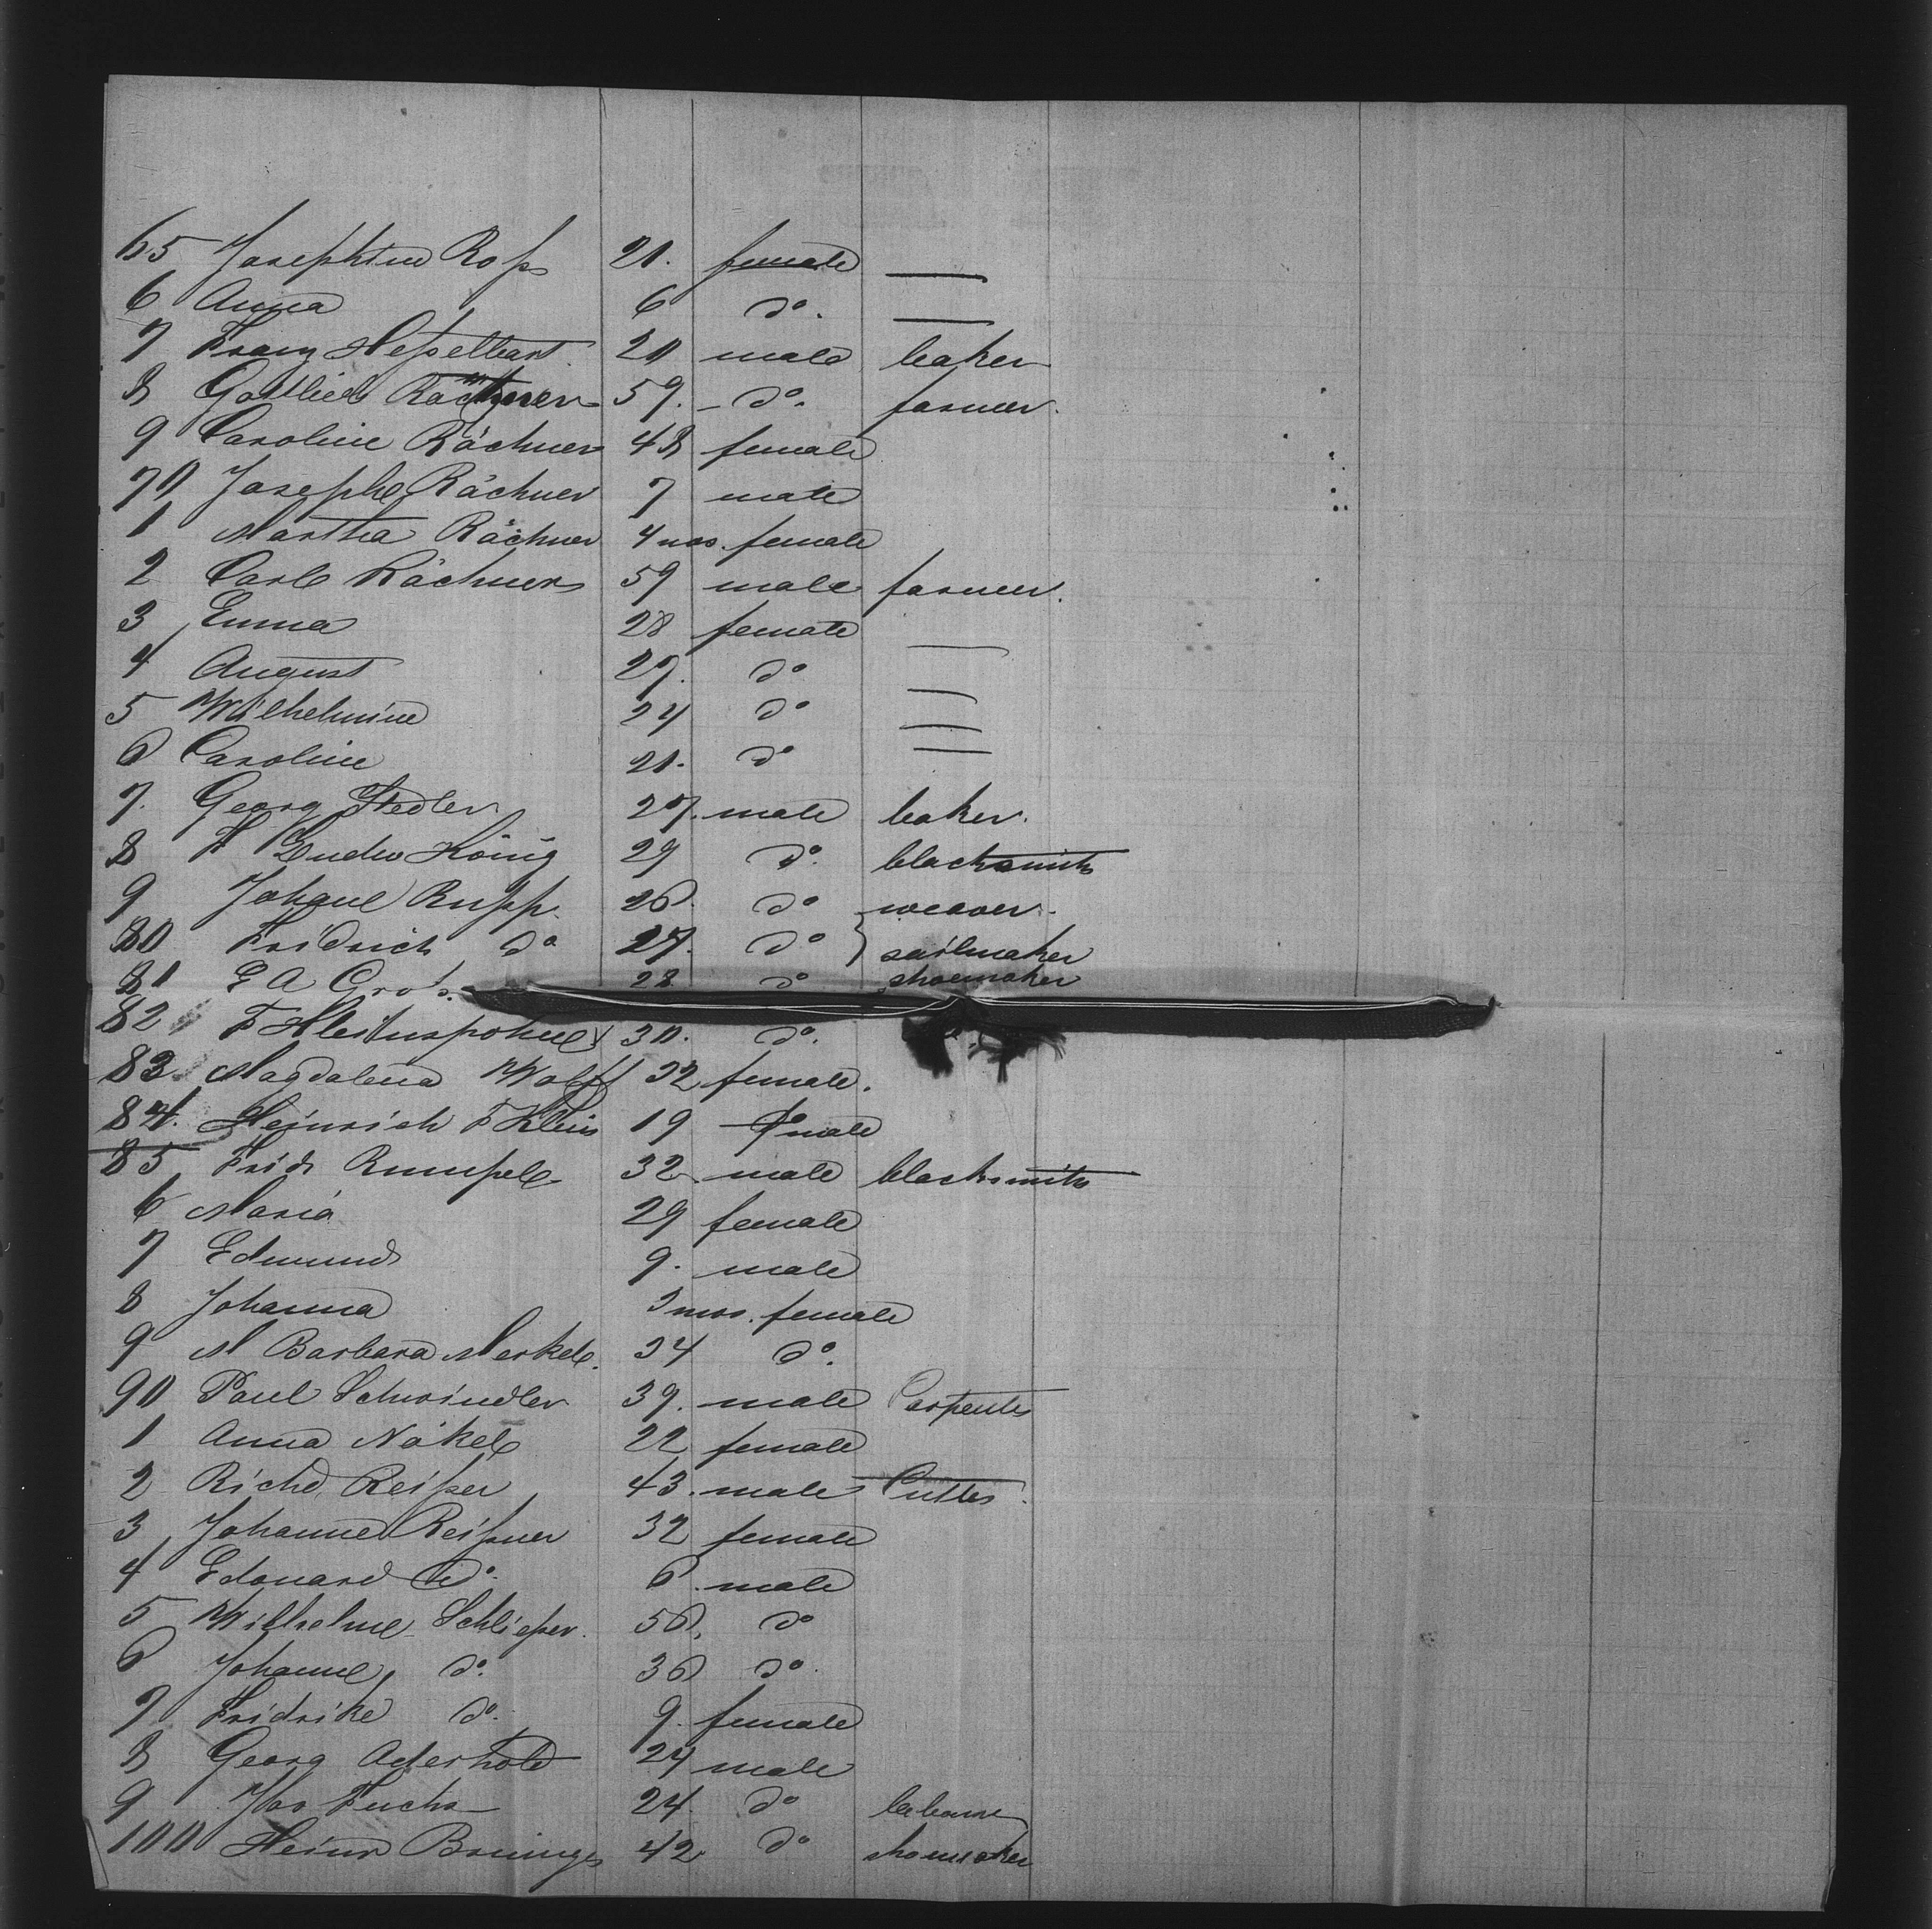 65 Josephine Roß 21. female —
6 Anna 6 do. —
7 Franz Heßelbart 20 male baker
8 Gottlieb Rächner 59. do. farmer.
9 Caroline Rächner 48 female
70 Joseph Rächner 7 male
1 Martha Rächner 4 mos. female
2 Carl Rächner 59 male farmer.
3 Emma 28 female —
4 August 27. do —
5 Wilhelmine 24 do —
6 Caroline 21. do —
7. Georg Stedler 27. male baker.
8 F König 29 do. blacksmith
9 Johann Rupp. 26. do weaver.
80 Fridrich do 27. do } sailmaker
81 E A 28 do shoemaker
82 F 30. do.
83 Magdalena Wolff 32 female.
84. Heinrich F Klein 19 male
85 Frid Rumpel 32 male blacksmith
6 Maria 29 female
7 Edmund 9. male
8 Johanna 3 mos. female
9 M Barbara Merkel. 34 do.
90 Paul Schwindler 39. male Carpenter
1 Anna Näkel 22 female
2 Richd Reißer 43. male Cutter.
3 Johanne Reißner 32 female
4 Edouard do. 6. male
5 Wilhelm Schließer. 56, do
6 Johann do. 36 do.
7 Fridrike do. 9. female
8 Georg Aderhold 24 male
9 Jos Fuchs 24. do
100 Heinr Bruninges 42 do shoemaker